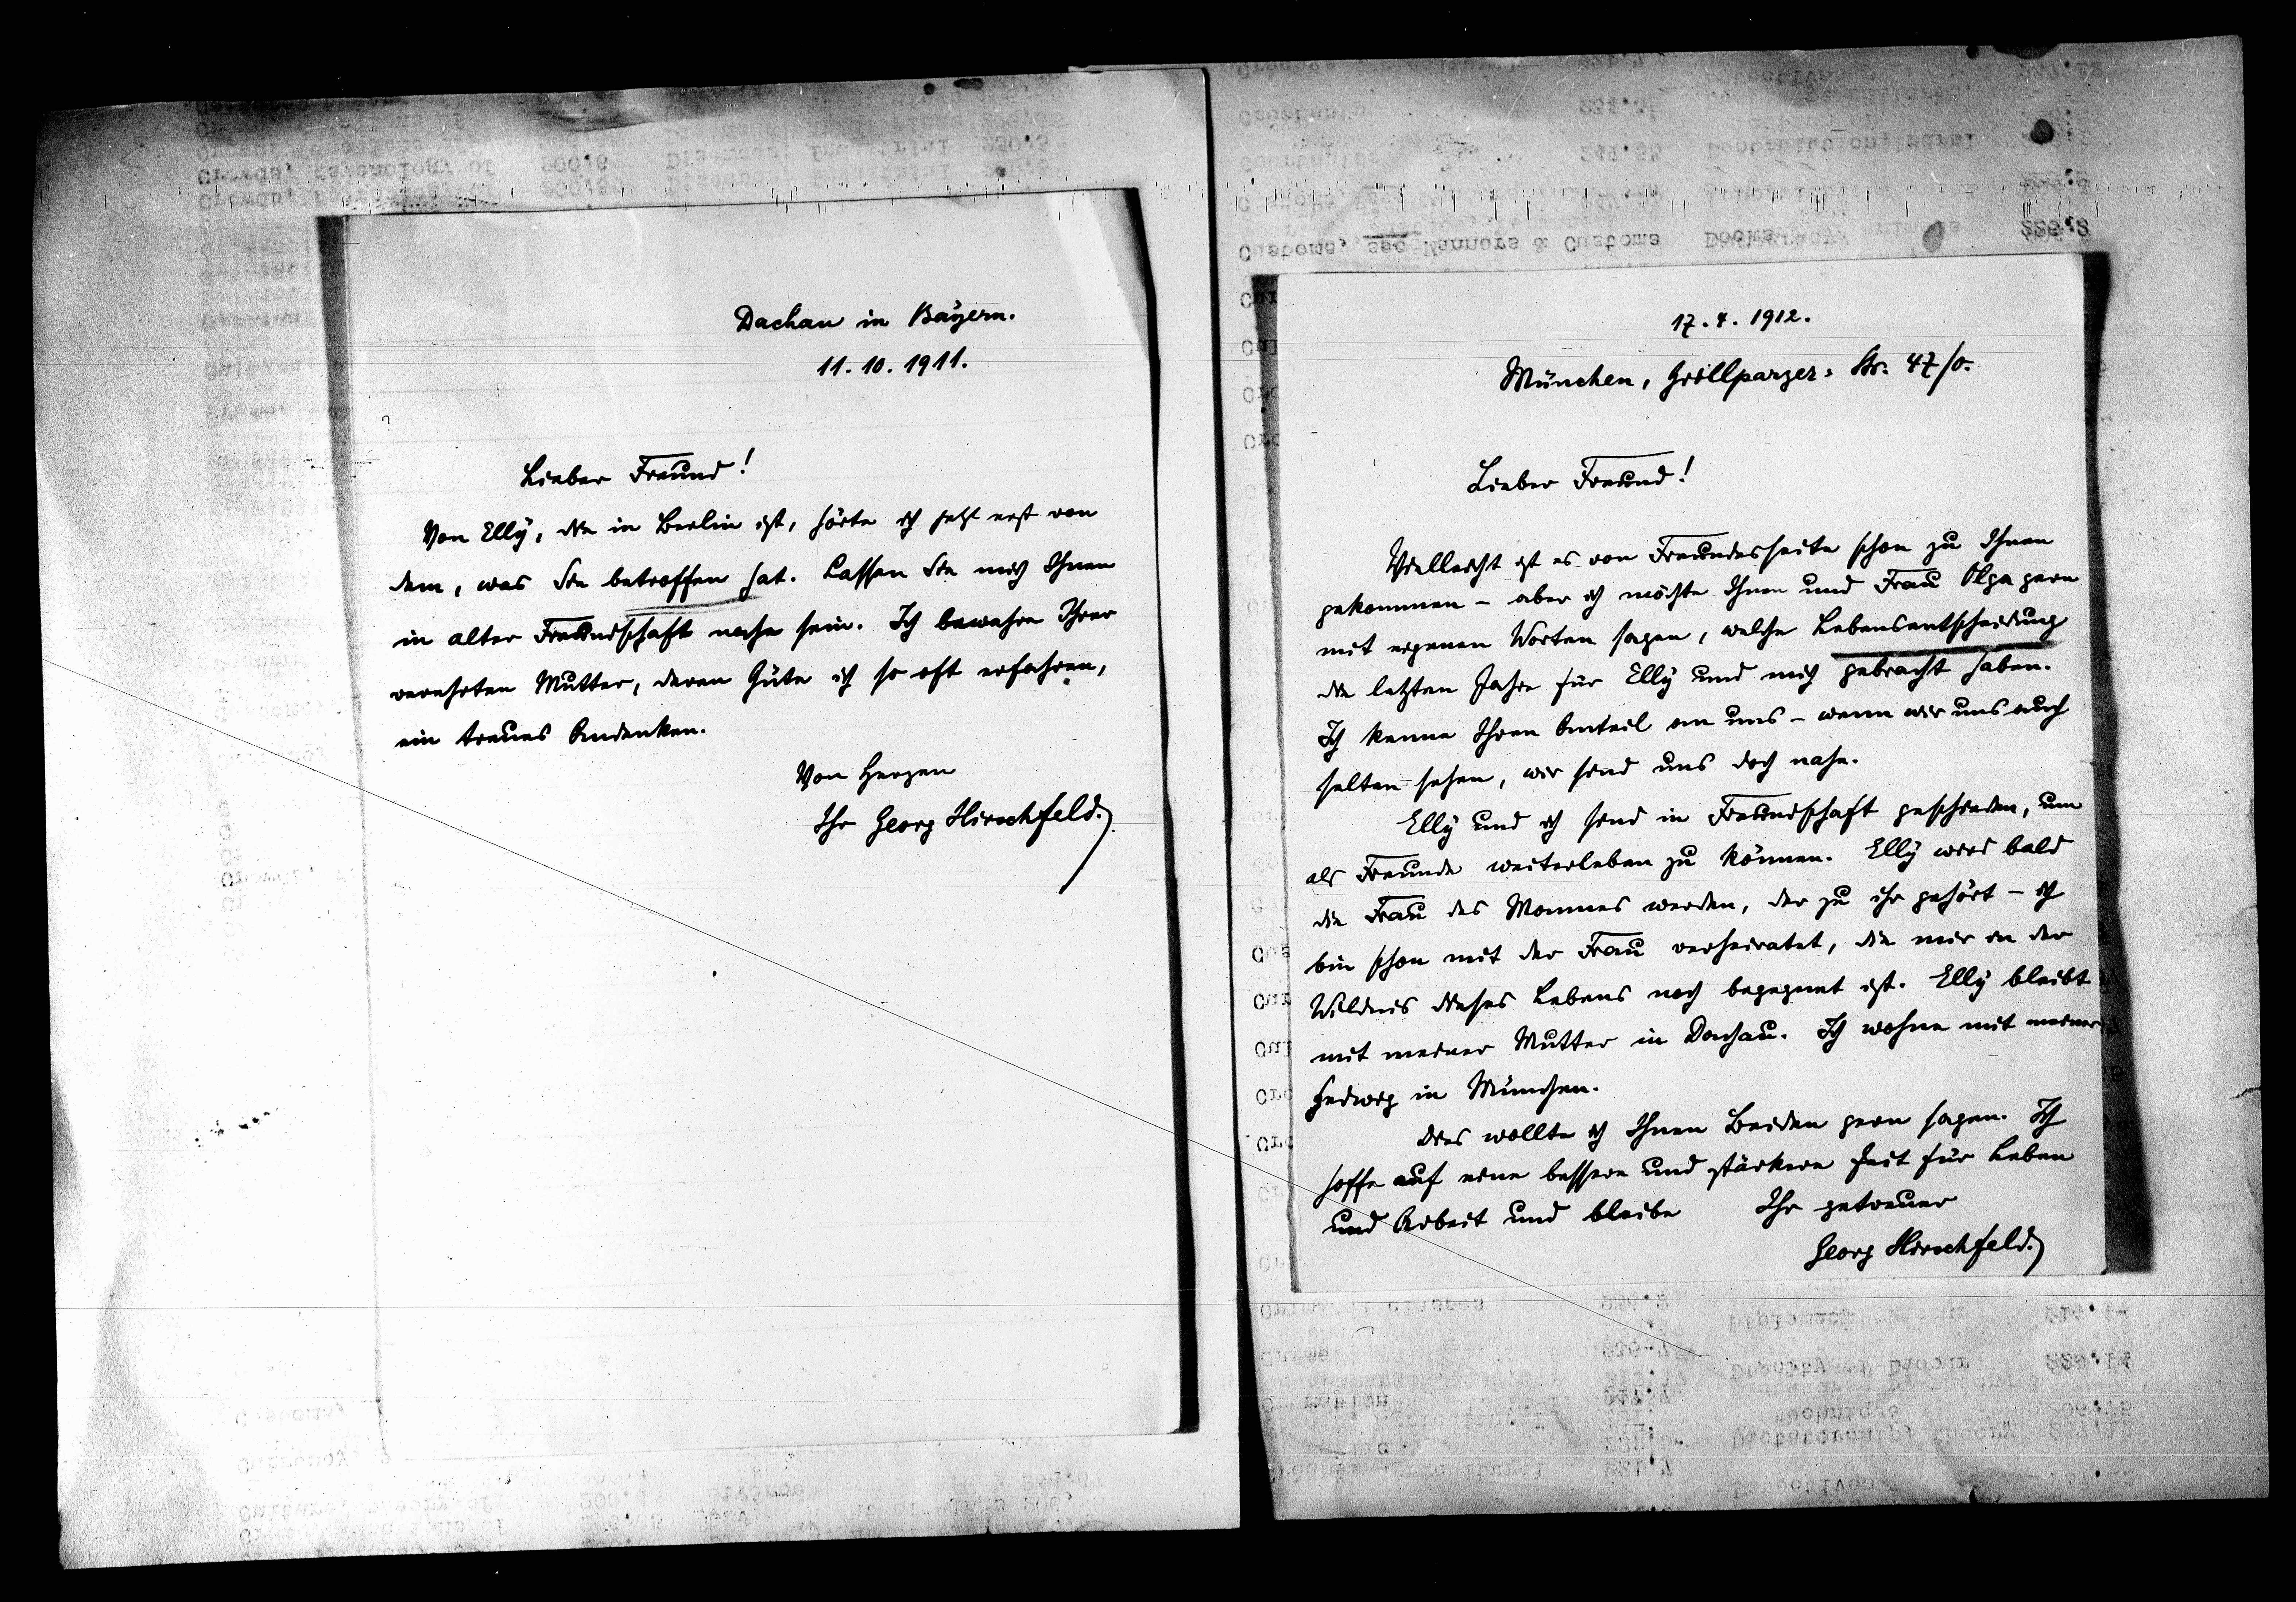 Dachau in Bayern.
11.10.1911.
Lieber Freund!
Von Elly, die in Berlin ist, hörte ich jetzt erst von
dem, was Sie betroffen hat. Lassen Sie mich Ihnen
in alter Freundschaft nahe sein. Ich bewahre Ihrer
verehrten Mutter, deren Güte ich so oft erfahren,
ein treues Andenken.
Von Herzen
Ihr Georg Hirschfeld.
17.4.1912.
München, Grillparzer-Str. 47/0.
Lieber Freund!
Vielleicht ist es von Freundesseite schon zu Ihnen
gekommen – aber ich möchte Ihnen und Frau Olga gern
mit eigenen Worten sagen, welche Lebensentscheidung
die letzten Jahre für Elly und mich gebracht haben.
Ich kenne Ihren Anteil an uns – wenn wir uns auch
selten sehen, wir sind uns doch nahe.
Elly und ich sind in Freundschaft geschieden, um
als Freunde weiterleben zu können. Elly wird bald
die Frau des Mannes werden, der zu ihr gehört – ich
bin schon mit der Frau verheiratet, die mir in der
Wildnis dieses Lebens noch begegnet ist. Elly bleibt
mit meiner Mutter in Dachau. Ich wohne mit meiner
Hedwig in München.
Dies wollte ich Ihnen Beiden gern sagen. Ich
hoffe auf eine bessere und stärkere Zeit für Leben
und Arbeit und bleibe Ihr getreuer
Georg Hirschfeld.